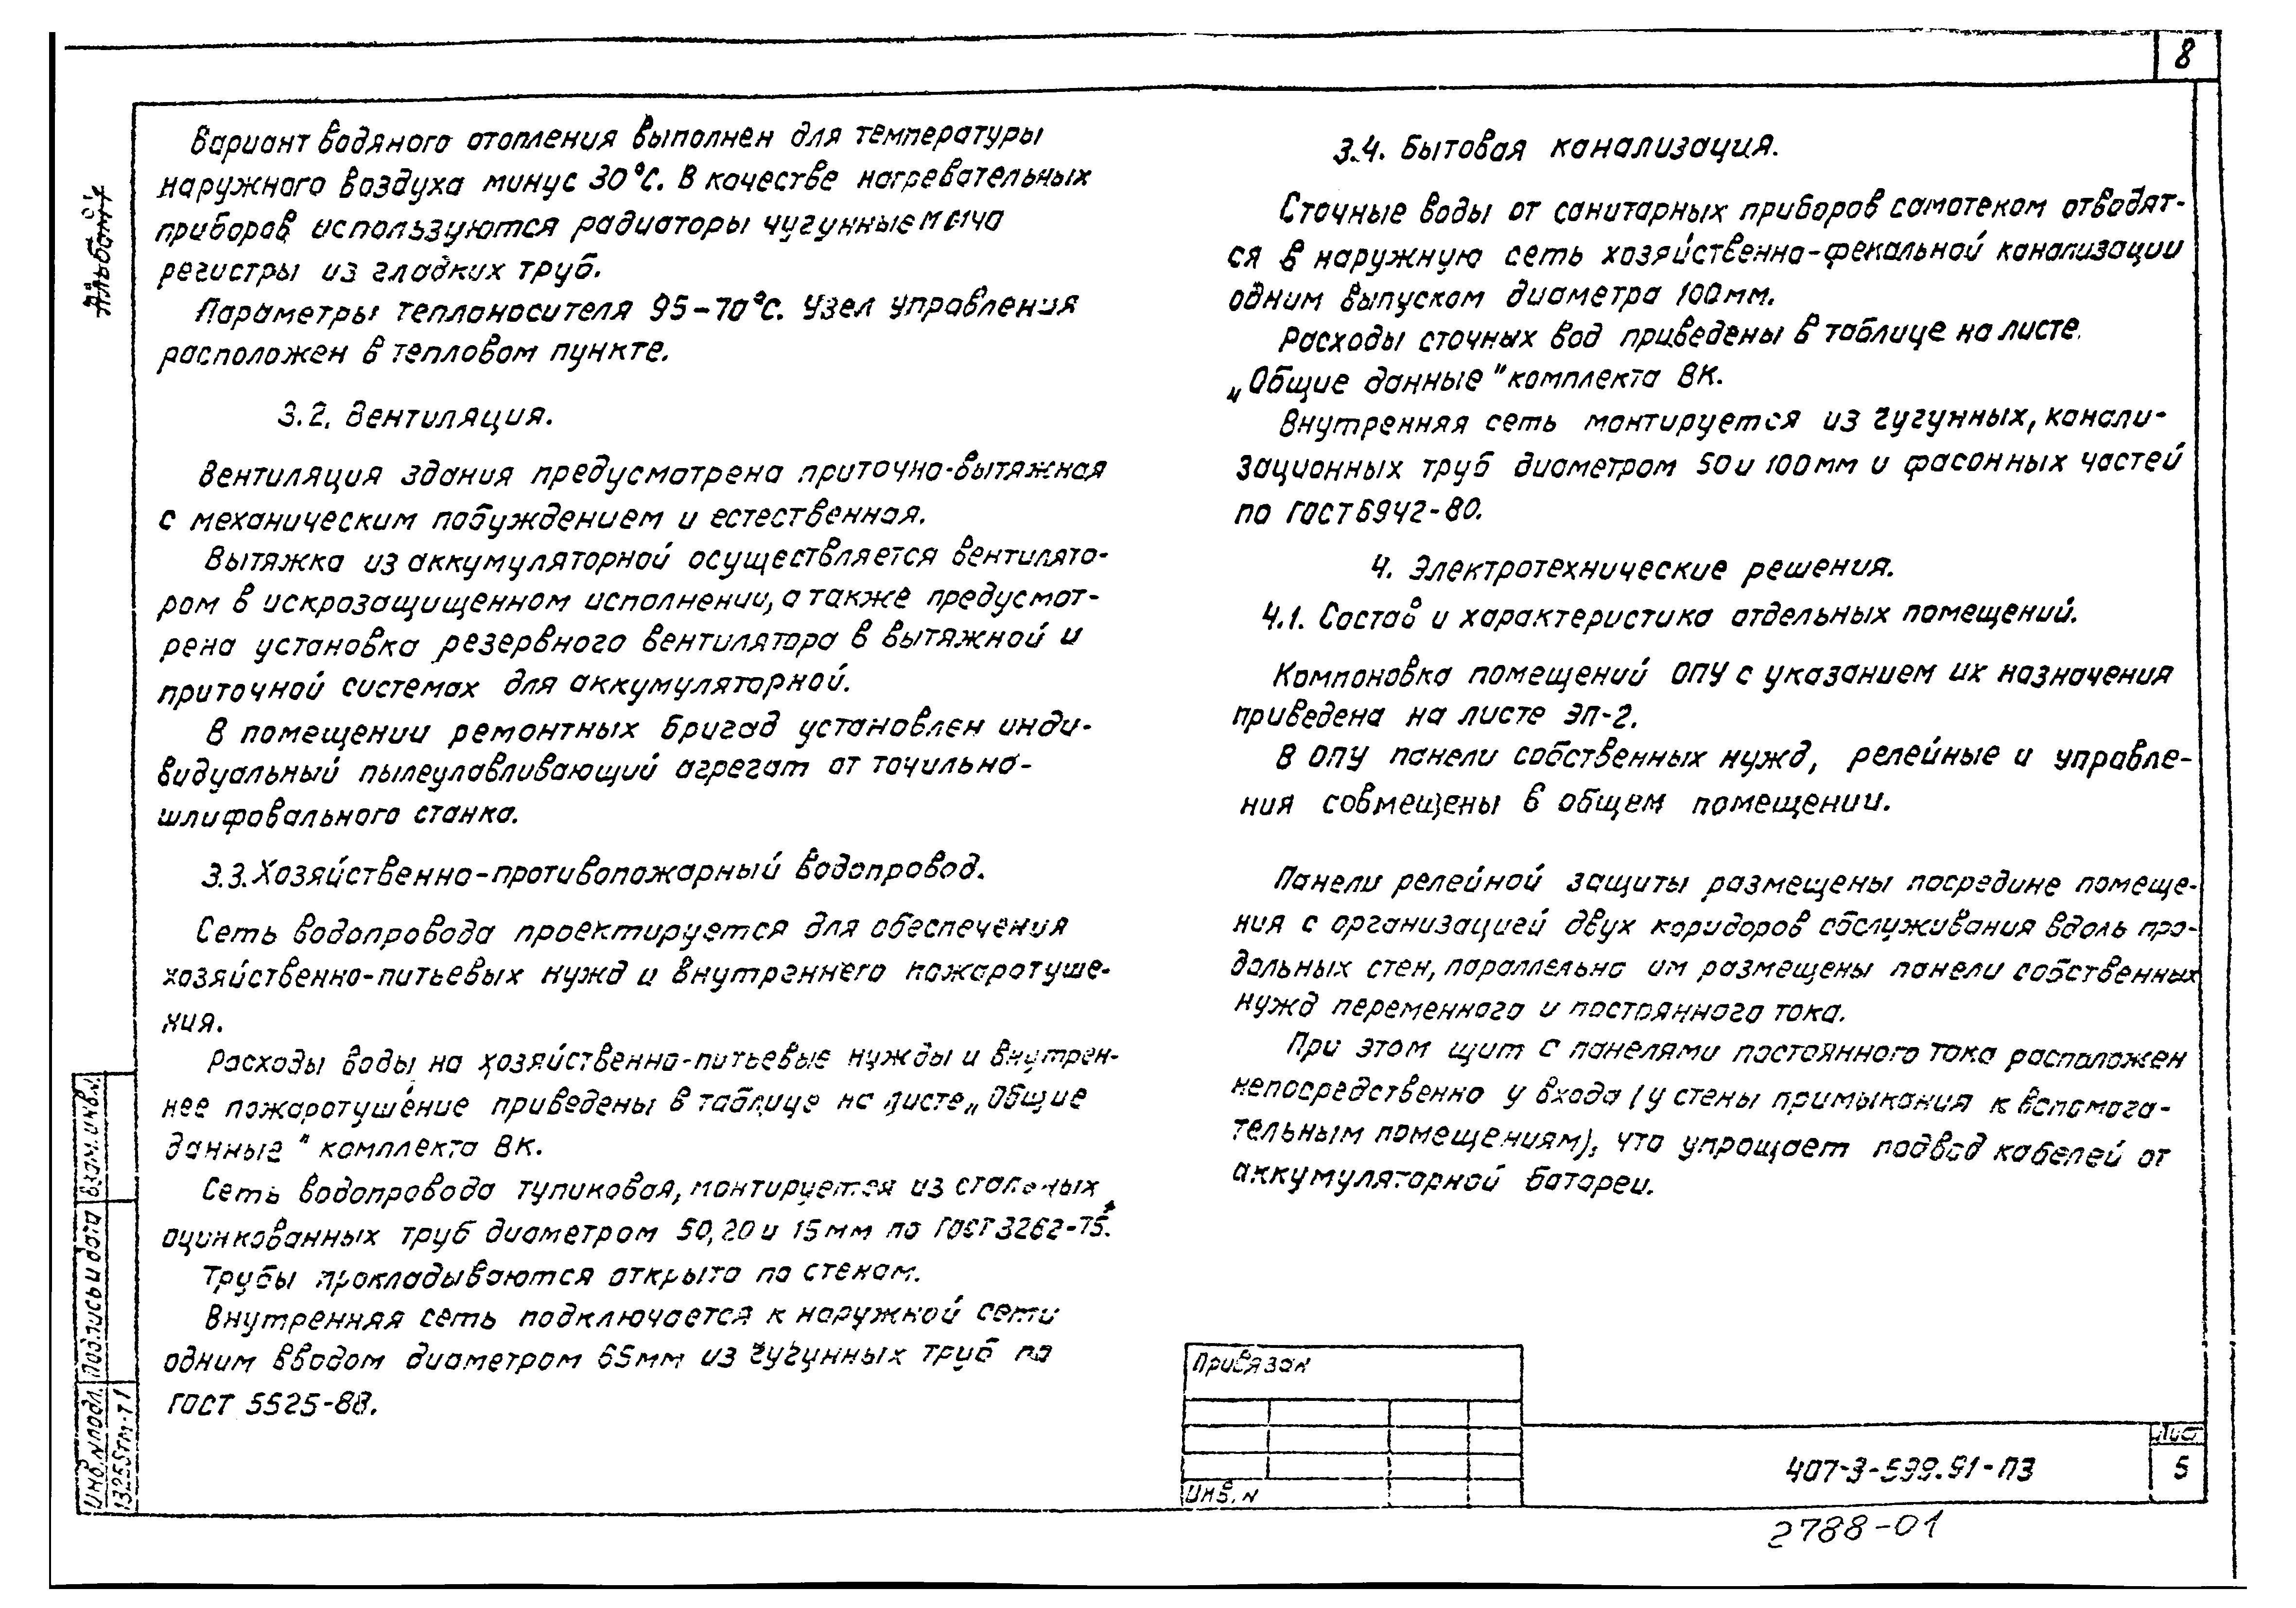 8
Вариант водяного отопления выполнен для температуры
наружного воздуха минус 30°С. В качестве нагревательных
приборов используются радиаторы чугунные
регистры из гладких труб.
Параметры теплоносителя 95-70°С. Узел управления
расположен в тепловом пункте.
3.2. Вентиляция.
Вентиляция здания предусмотрена приточно-вытяжная
с механическим побуждением и естественная.
Вытяжка из аккумуляторной осуществляется вентилято-
ром в искрозащищенном исполнении, а также предусмот-
рена установка резервного вентилятора в вытяжной и
приточной системах для аккумуляторной.
В помещении ремонтных бригад установлен инди-
видуальный пылеулавливающий агрегат от точильно-
шлифовального станка.
3.3. Хозяйственно-противопожарный водопровод.
Сеть водопровода проектируется для обеспечения
хозяйственно-питьевых нужд и внутреннего пожаротуше-
ния.
Расходы воды на хозяйственно-питьевые нужды и внутрен-
нее пожаротушение приведены в таблице на листе „Общие
данные" комплекта ВК.
Сеть водопровода тупиковая, монтируется из стальных
оцинкованных труб диаметром 50, 20 и 15 мм по ГОСТ 3262-75*.
Трубы прокладываются открыто по стенам.
Внутренняя сеть подключается к наружной сети
одним вводом диаметром 65мм из чугунных труб по
ГОСТ 5525-88.
3.4. Бытовая канализация.
Сточные воды от санитарных приборов самотеком отводят-
ся в наружную сеть хозяйственно-фекальной канализации
одним выпуском диаметра 100мм.
Расходы сточных вод приведены в таблице на листе.
„Общие данные" комплекта ВК.
Внутренняя сеть монтируется из чугунных, канали-
зационных труб диаметром 50 и 100 мм и фасонных частей
по ГОСТ 6942-80.
4. Электротехнические решения.
4.1. Состав и характеристика отдельных помещений.
Компоновка помещений ОПУ с указанием их назначения
приведена на листе ЭП-2.
В ОПУ панели собственных нужд, релейные и управле-
ния совмещены в общем помещении.
Панели релейной защиты размещены посредине помеще-
ния с организацией двух коридоров обслуживания вдоль про-
дольных стен, параллельно им размещены панели собственных
нужд переменного и постоянного тока.
При этом щит с панелями постоянного тока расположен
непосредственно у входа (у стены примыкания к вспомога-
тельным помещениям), что упрощает подвод кабелей от
аккумуляторной батареи.
Альбом 1
Взам. инв.№
Подпись и дата
Инв. № подл.
13255тм-т1
Привязан
Инв. №
407-3-599.91-ПЗ
Лист
5
2788-01